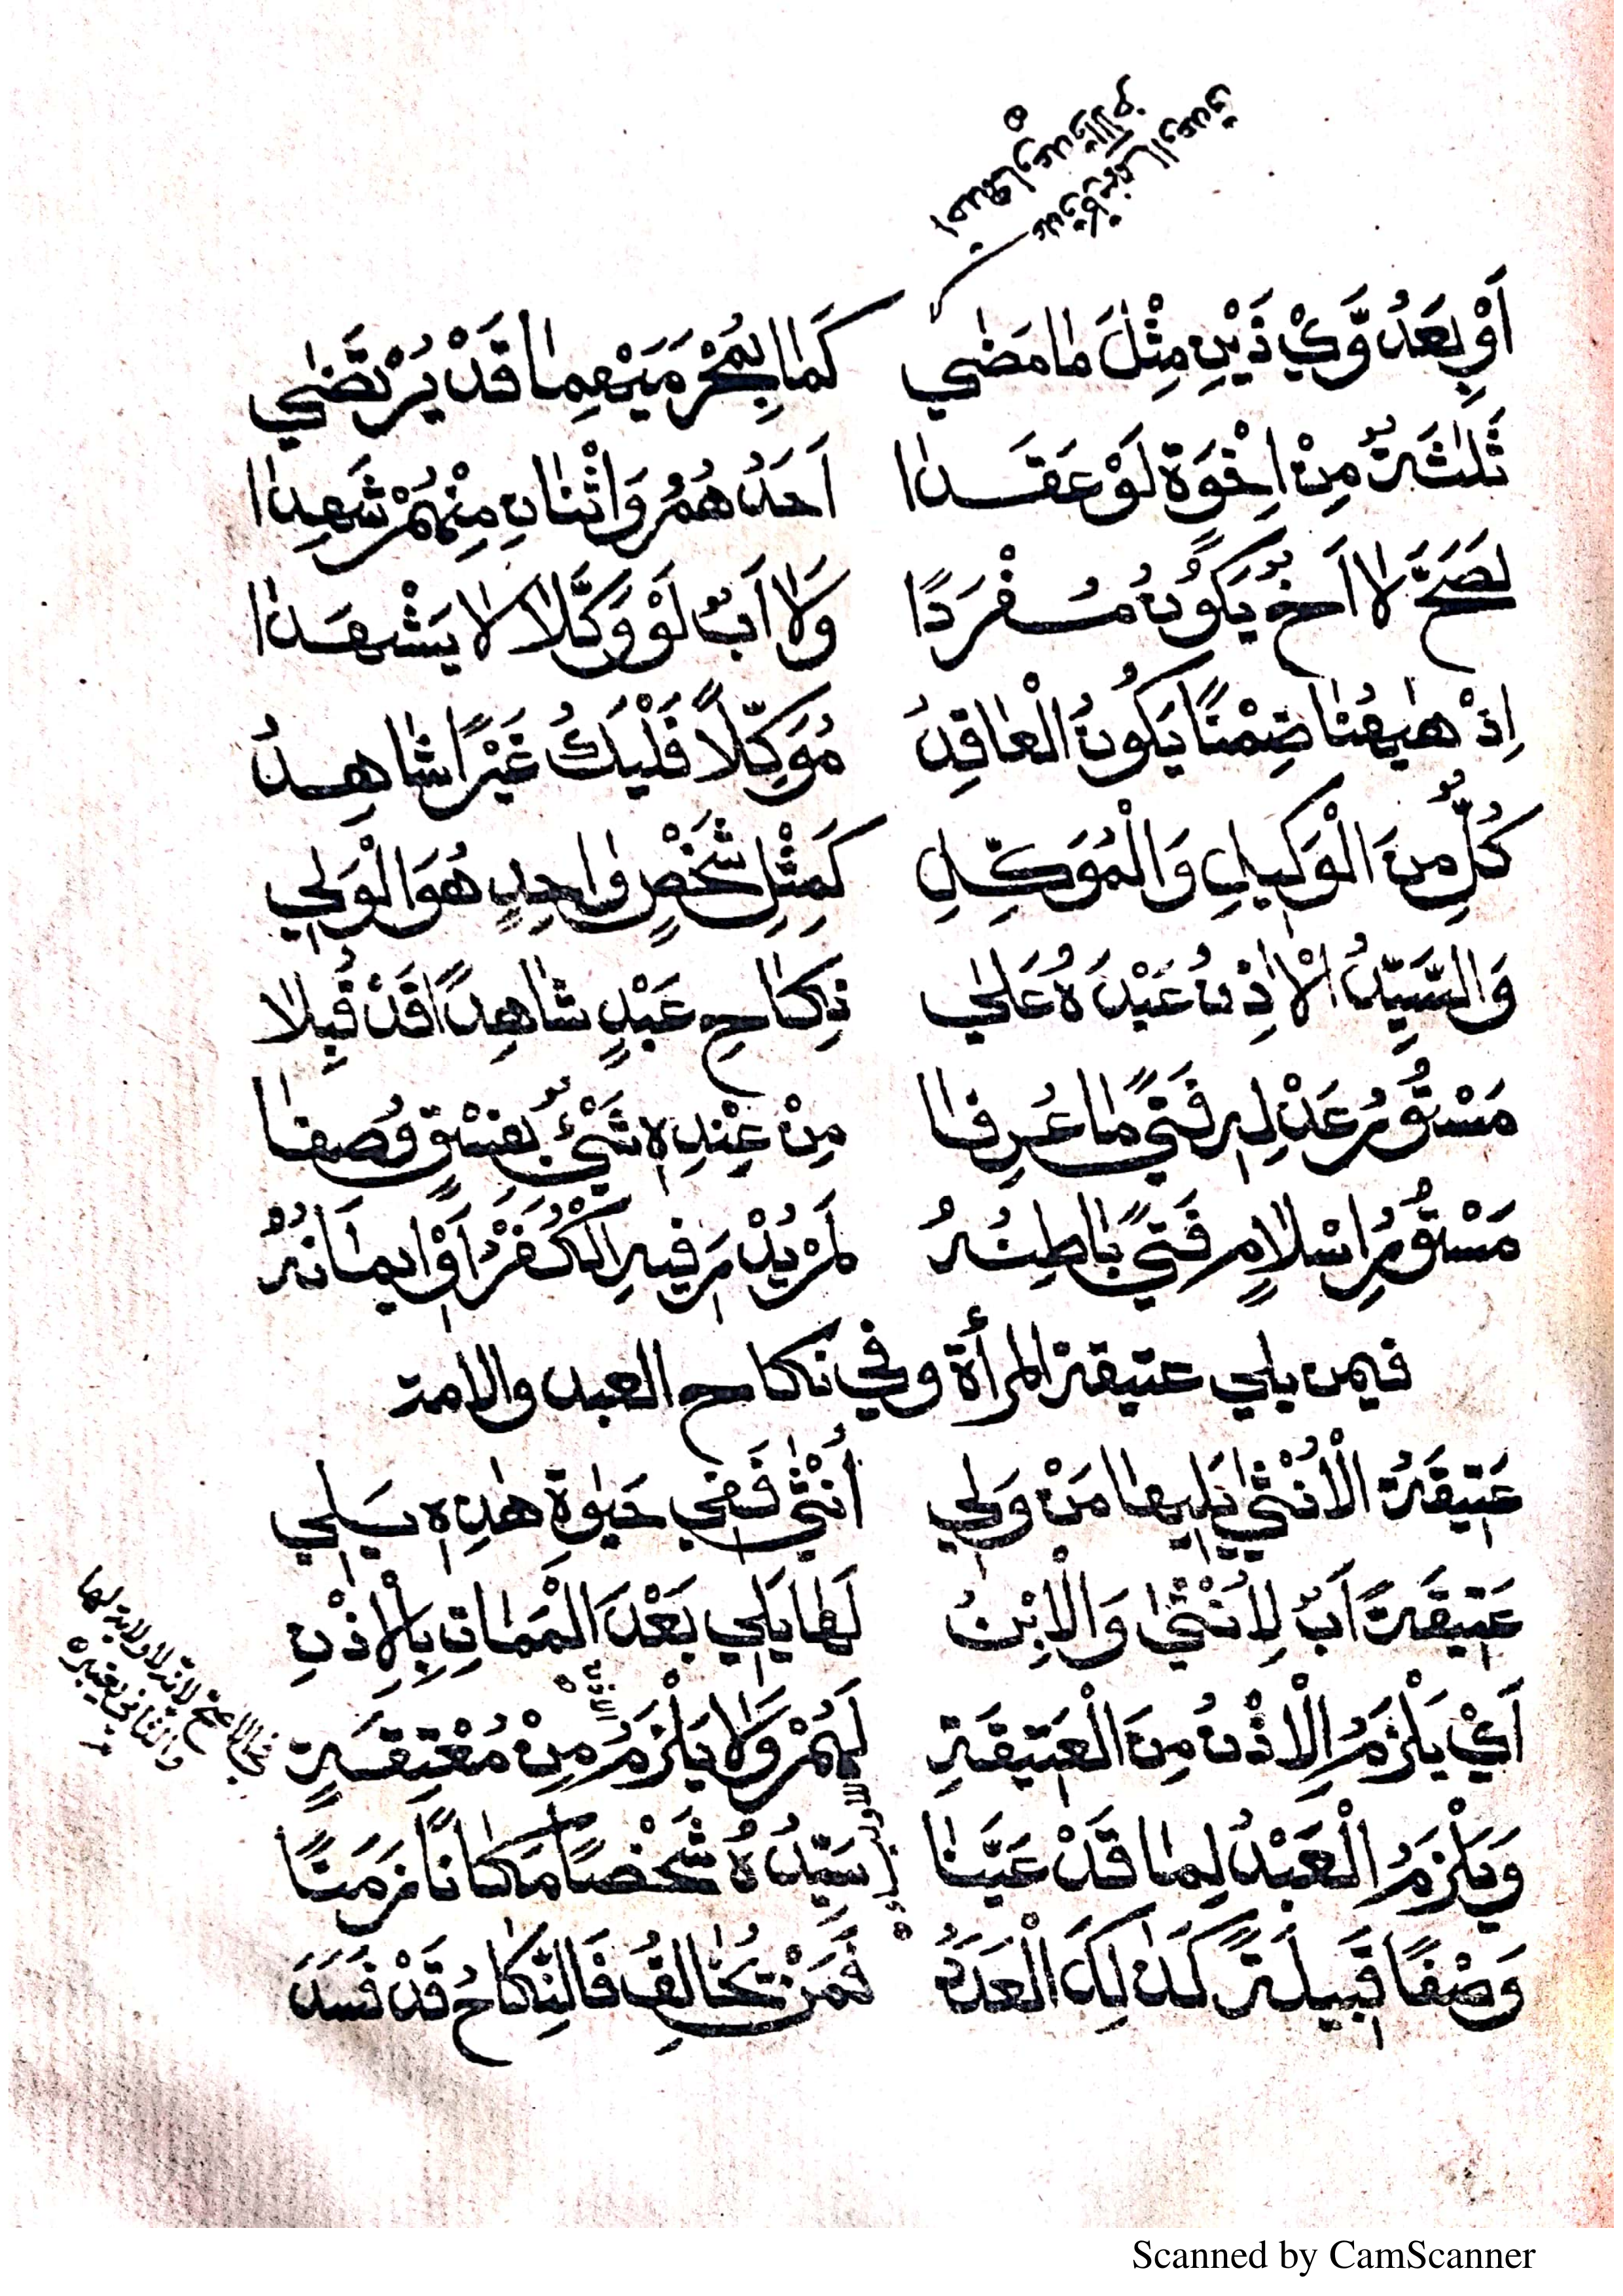 اَوْ بِعَدُوَّيْ ذَيْنِ مِثْلَ مَا مَضٰي كَمَا بِمَحْرَمَيْهِمَا قَدْ يُرْتَضٰي
ثَلٰثَةٌ مِنْ اِخْوَةٍ لَوْ عَقَدَا اَحَدُهُمْ وَاثْنَانِ مِنْهُمْ شَهِدَا
لَصَحَّ لَا اَخٌ يَكُوْنُ مُفْرَدًا وَلَا اَبٌ لَوْ وَكَّلَا لَا يَشْهَدَا
اِذْ هٰهُنَا ضِمْنًا يَكُوْنُ الْعَاقِدُ مُوَكِّلًا فَلْيَكُ غَيْرًا شَاهِدُ
كُلٌّ مِنَ الْوَكِيْلِ وَالْمُوَكِّلِ كَمِثْلِ شَخْصٍ وَاحِدٍ هُوَ الْوَلِي
وَالسَّيِّدُ الْاٰذِنُ عَبْدَهُ عَلٰي نِكَاحِ عَبْدٍ شَاهِدًا قَدْ قُبِلَا
مَسْتُوْرُ عَدْلٍ فَتًي مَا عُرِفَا مِنْ عِنْدِهِ شَيْءٌ بِفِسْقٍ وُصِفَا
مَسْتُوْرُ اِسْلَامٍ فَتًي بَاطِنُهُ لَمْ يُدْرَ فِيْهِ الْكُفْرُ اَوْ اِيْمَانُهُ
فيمن يلي عتيقة المرأة وفي نكاح العبد والامة
عَتِيْقَةُ الْاُنْثٰي يَلِيْهَا مَنْ وَلِي اُنْثٰي فَفِي حَيٰوةِ هٰذِهِ يَلِي
عَتِيْقَةً اَبٌ لِاُنْثٰي وَالْاِبْنُ لَهَا يَلِي بَعْدَ الْمَمَاتِ بِالْاِذْنِ
اَيْ يَلْزَمُ الْاِذْنُ مِنَ الْعَتِيْقَةِ لَهُمْ وَلَا يَلْزَمُ مِنْ مُعْتِقَةٍ
وَيَلْزَمُ الْعَبْدُ لِمَا قَدْ عَيَّنَا سَيِّدُهُ شَخْصًا مَكَانًا زَمَنًا
وَصْفًا قَبِيْلَةً كَذٰلِكَ الْعَدَدُ فَمَنْ يُخَالِفُ فَالنِّكَاحُ قَدْ فَسَدَ
لانه لا ولاية لها
والثاني يعتبره
Scanned by CamScanner